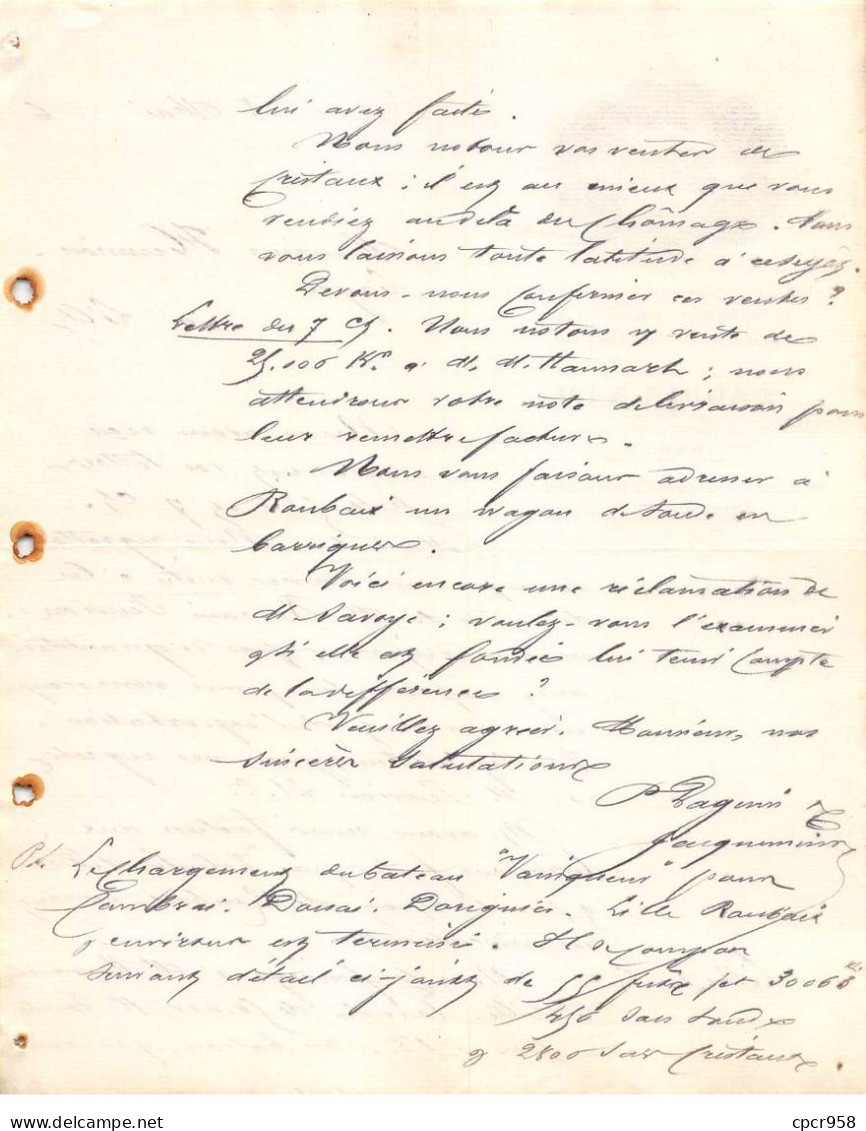 lui avez faite.
Nous notons vos ventes de
Cristaux ; il est au mieux que vous
vendiez au delà du Chômage. Nous
vous laissons toute latitude à cet
Devons-nous confirmer ces ventes ?
Lettre du 7 Ct. Nous notons vente de
25.000 K. à M. M. ; nous
attendrons votre note de livraison pour
leur remettre facture.
Nous vous faisons adresser à
Roubaix un wagon de soude en
barriques.
Voici encore une réclamation de
M Savoye ; voulez-vous l'examiner
et si elle est fondée lui tenir Compte
de la différence ?
Veuillez agréer, Monsieur, nos
sincères salutations
Le Chargement du bateau "Vainqueur" pour
Cambrai. Douai. Dorignies. Lille Roubaix
& environs est terminé. Il se compose
suivant détail ci-joint de 55 fûts
450 sacs soude
& 2800 sacs Cristaux.
cpcr958